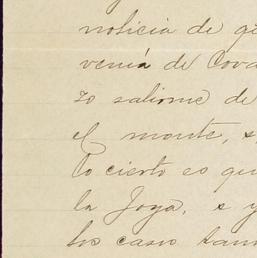 noticia de
venia de Cova
zo salirme de
el monte, s
Lo cierto es qu
la Joya, e y
los casos tam